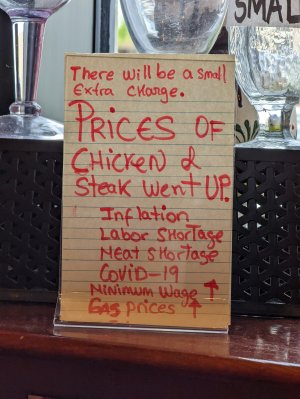 SMALL
There will be a small
Extra change.
PRICES OF
CHicken &
Steak went UP.
Inflation
Labor SHortage
Meat SHortage
COVID-19
Minimum Wage ↑
GAS prices ↑